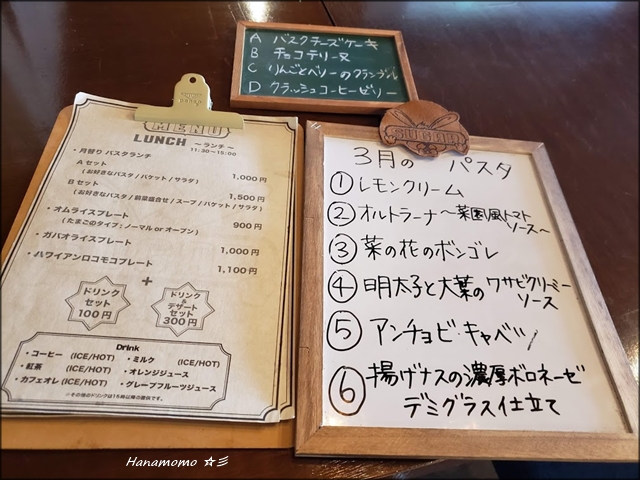 A バスクチーズケーキ
B チョコテリーヌ
C りんごとベリーのクランブル
D クラッシュコーヒーゼリー
MENU
LUNCH ～ランチ～
11:30～15:00
・月替り パスタランチ
Aセット 1,000円
(お好きなパスタ / バケット / サラダ)
Bセット 1,500円
(お好きなパスタ / 前菜盛合せ / スープ / バケット / サラダ)
・オムライスプレート 900円
(たまごのタイプ : ノーマル or オープン)
・ガパオライスプレート 1,000円
・ハワイアンロコモコプレート 1,100円
+
ドリンク
セット
100円
ドリンク
&
デザート
セット
300円
Drink
・コーヒー (ICE/HOT)
・紅茶 (ICE/HOT)
・カフェオレ (ICE/HOT)
・ミルク (ICE/HOT)
・オレンジジュース
・グレープフルーツジュース
※その他のドリンクは15時以降の提供です。
SUGAR
3月の パスタ
① レモンクリーム
② オルトラーナ～菜園風トマト
ソース～
③ 菜の花のボンゴレ
④ 明太子と大葉のワサビクリーミー
ソース
⑤ アンチョビ・キャベツ
⑥ 揚げナスの濃厚ボロネーゼ
デミグラス仕立て
Hanamomo ☆彡